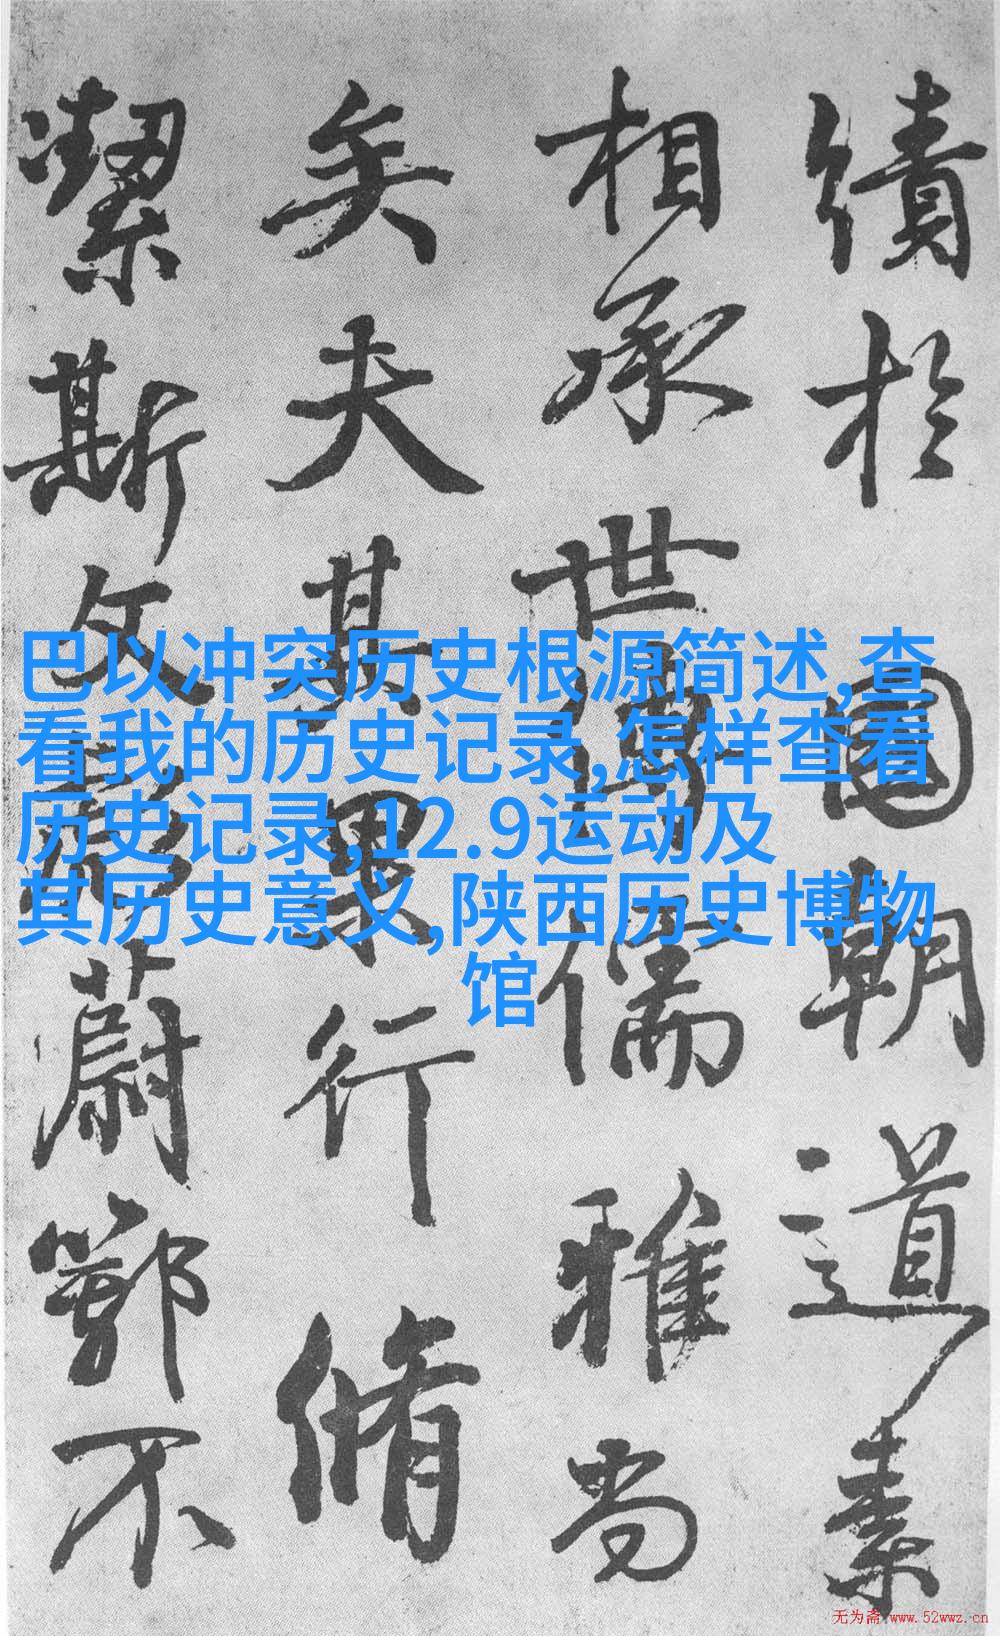 績於國朝道素
相承世傳儒雅尚
矣夫其果行脩
潔斯文彪蔚鄂不
巴以冲突历史根源简述,查
看我的历史记录,怎样查看
历史记录,12.9运动及
其历史意义,陕西历史博物
馆
无为斋 www.52wwz.cn